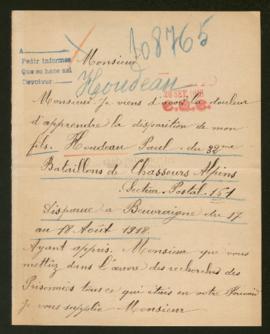 A
Pedir informes
Que se hace así
Devolver
108765
Monsieur
Houdeau
Monsieur Je viens d'avoir la douleur
d'apprendre la disparition de mon
fils. Houdeau Paul du 32ème
Bataillons de Chasseurs Alpins
Secteur Postal 151
Disparue a Beuvraigne du 17
au 18 Août 1918.
Ayant appris Monsieur que vous
mettiez dans l'œuvre des recherches des
Prisonniers tous ce qui étais en votre Pouvoir
Je vous supplie Monsieur